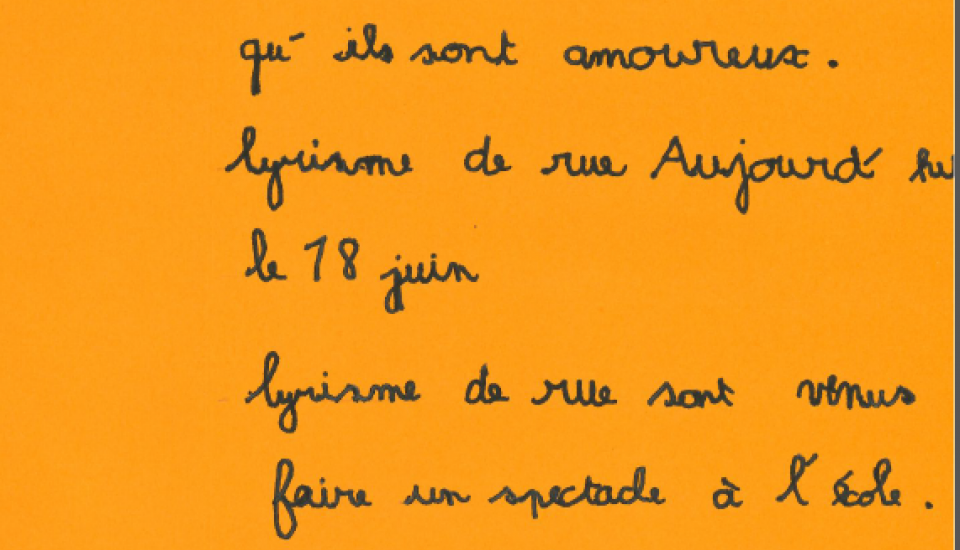 qu' ils sont amoureux.
lyrisme de rue Aujourd' hu
le 18 juin
lyrisme de rue sont venus
faire un spectacle à l'école.